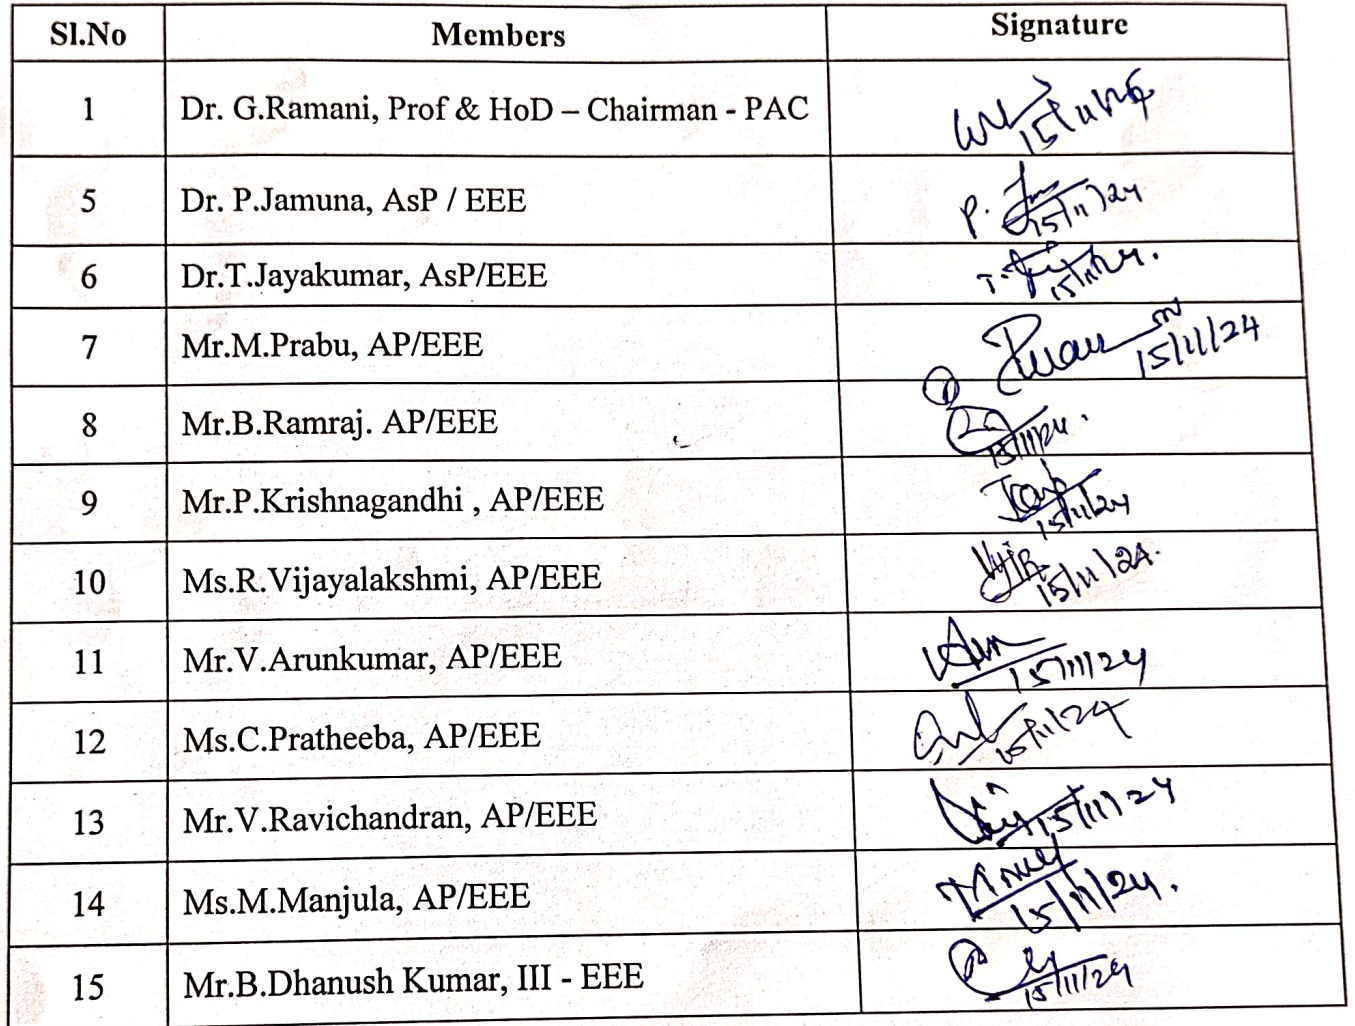 Sl.No Members Signature
1 Dr. G.Ramani, Prof & HoD – Chairman - PAC 15/11/24
5 Dr. P.Jamuna, AsP / EEE P. 15/11/24
6 Dr.T.Jayakumar, AsP/EEE T. 15/11/24.
7 Mr.M.Prabu, AP/EEE 15/11/24
8 Mr.B.Ramraj. AP/EEE 15/11/24.
9 Mr.P.Krishnagandhi , AP/EEE 15/11/24
10 Ms.R.Vijayalakshmi, AP/EEE 15/11/24.
11 Mr.V.Arunkumar, AP/EEE 15/11/24
12 Ms.C.Pratheeba, AP/EEE 15/11/24
13 Mr.V.Ravichandran, AP/EEE 15/11/24
14 Ms.M.Manjula, AP/EEE 15/11/24.
15 Mr.B.Dhanush Kumar, III - EEE 15/11/24